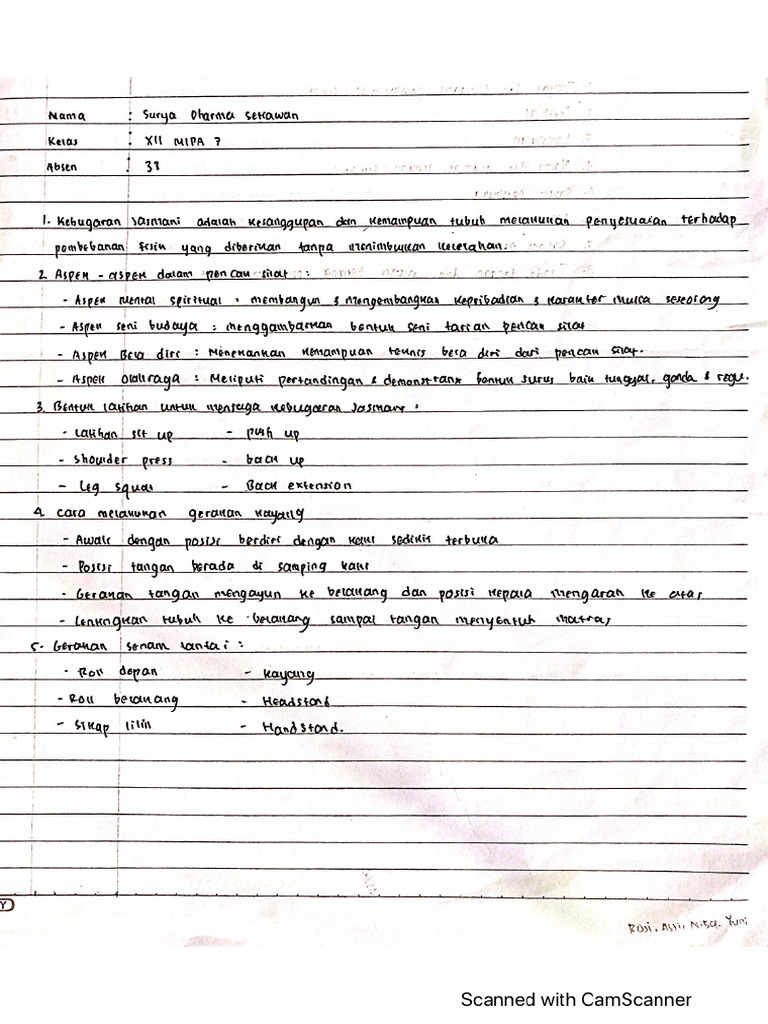 Nama : Surya Dharma Setiawan
Kelas : XII MIPA 7
Absen : 33
1. Kebugaran Jasmani adalah kesanggupan dan kemampuan tubuh melakukan penyesuaian terhadap
pembebanan fisik yang diberikan tanpa menimbulkan kelelahan.
2. Aspek - aspek dalam pencak silat :
- Aspek mental spiritual : membangun & mengembangkan kepribadian & karakter mulia seseorang
- Aspek seni budaya : menggambarkan bentuk seni tarian pencak silat
- Aspek Bela diri : Menekankan kemampuan teknis bela diri dari pencak silat.
- Aspek Olahraga : Meliputi pertandingan & demonstrasi bentuk jurus baik tunggal, ganda & regu.
3. Bentuk latihan untuk menjaga kebugaran Jasmani :
- Latihan sit up - push up
- Shoulder press - back up
- Leg squat - Back extension
4. Cara melakukan gerakan kayang
- Awali dengan posisi berdiri dengan kaki sedikit terbuka
- Posisi tangan berada di samping kaki
- Gerakan tangan mengayun ke belakang dan posisi kepala mengarah ke atas
- Lengkungkan tubuh ke belakang sampai tangan menyentuh matras
5. Gerakan senam lantai :
- Roll depan - Kayang
- Roll belakang - Headstand
- Sikap lilin - Handstand.
Rosi, Asti, Nisa, Yuni
Scanned with CamScanner